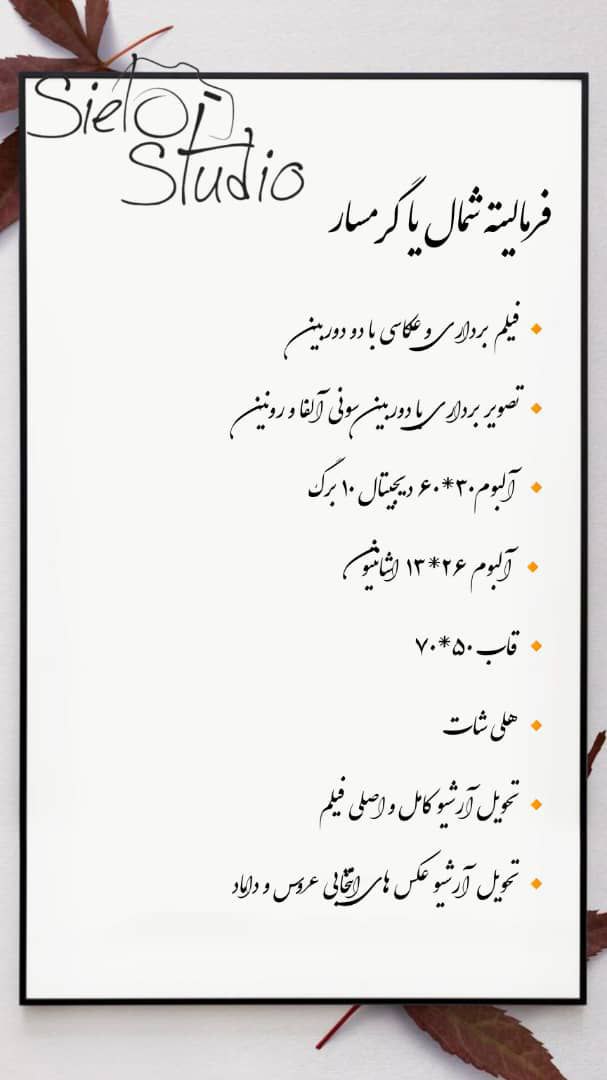 Sielo
Studio
فرمالیته شمال یا گرمسار
فیلم برداری و عکاسی با دو دوربین
تصویر برداری با دوربین سونی آلفا و رونین
آلبوم ۳۰*۶۰ دیجیتال ۱۰ برگ
آلبوم ۲۶*۱۳ اشانتیون
قاب ۵۰*۷۰
هلی شات
تحویل آرشیو کامل و اصلی فیلم
تحویل آرشیو عکس های انتخابی عروس و داماد